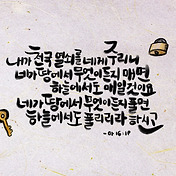 내가 천국 열쇠를 네게 주리니
네가 땅에서 무엇이든지 매면
하늘에서도 매일것이요
네가 땅에서 무엇이든지 풀면
하늘에서도 풀리리라 하시고
-마 16:19